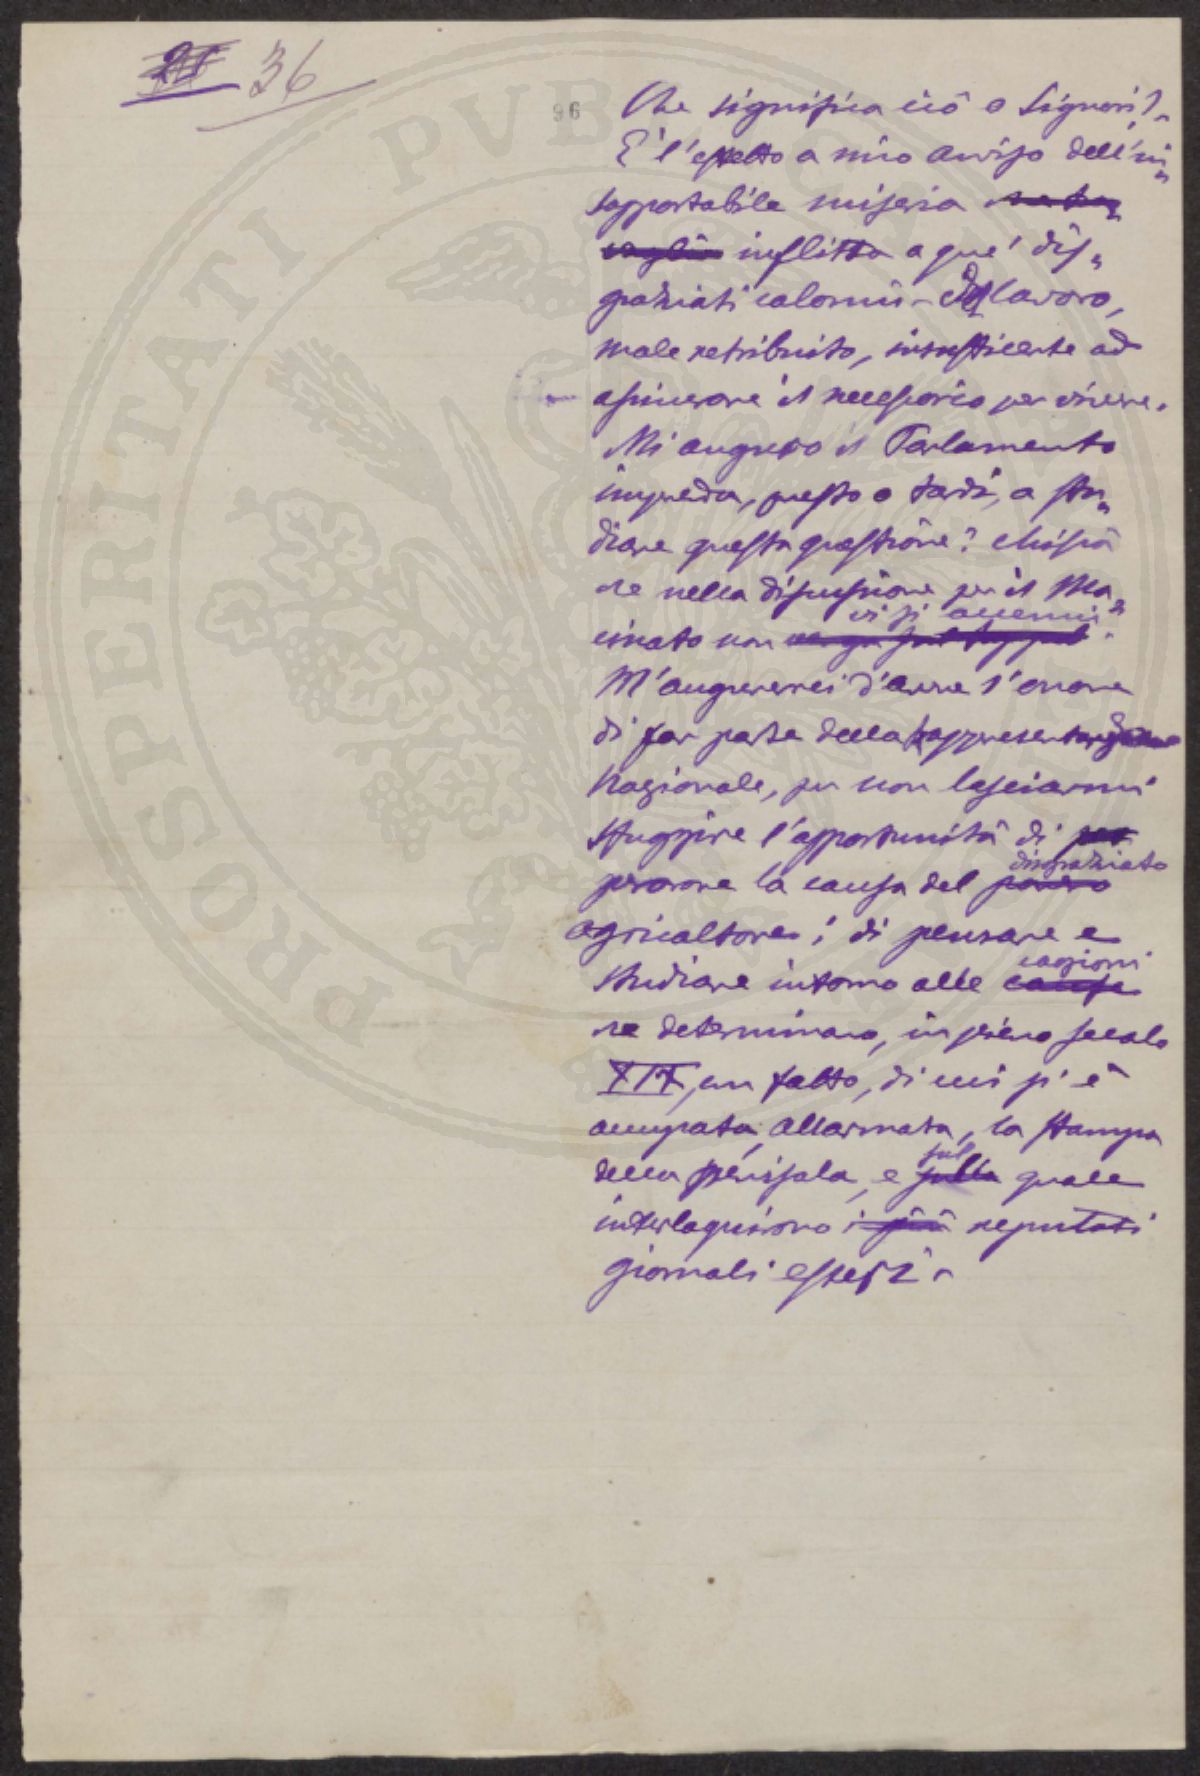 36
96
Che significa ciò o Signori?-
E' l'effetto a mio avviso dell'in-
sopportabile miseria
inflitta a que' dis-
graziati coloni - Del lavoro,
male retribuito, insufficiente ad
assicurare il necessario per vivere.
Mi auguro il Parlamento
imprenda, presto o tardi, a stu-
diare questa questione? Chissà
se nella discussione per il Ma-
cinato non vi si accenni?
M'augurerei d'avere l'onore
di far parte della Rappresentanza
Nazionale, per non lasciarmi
sfuggire l'opportunità di
perorare la causa del povero disgraziato
agricoltore; di pensare e
studiare intorno alle cause cagioni
che determinano, in pieno secolo
XIX, un fatto, di cui si è
occupata, allarmata, la stampa
della penisola, e sulla sul quale
interloquirono i più reputati
giornali esteri -